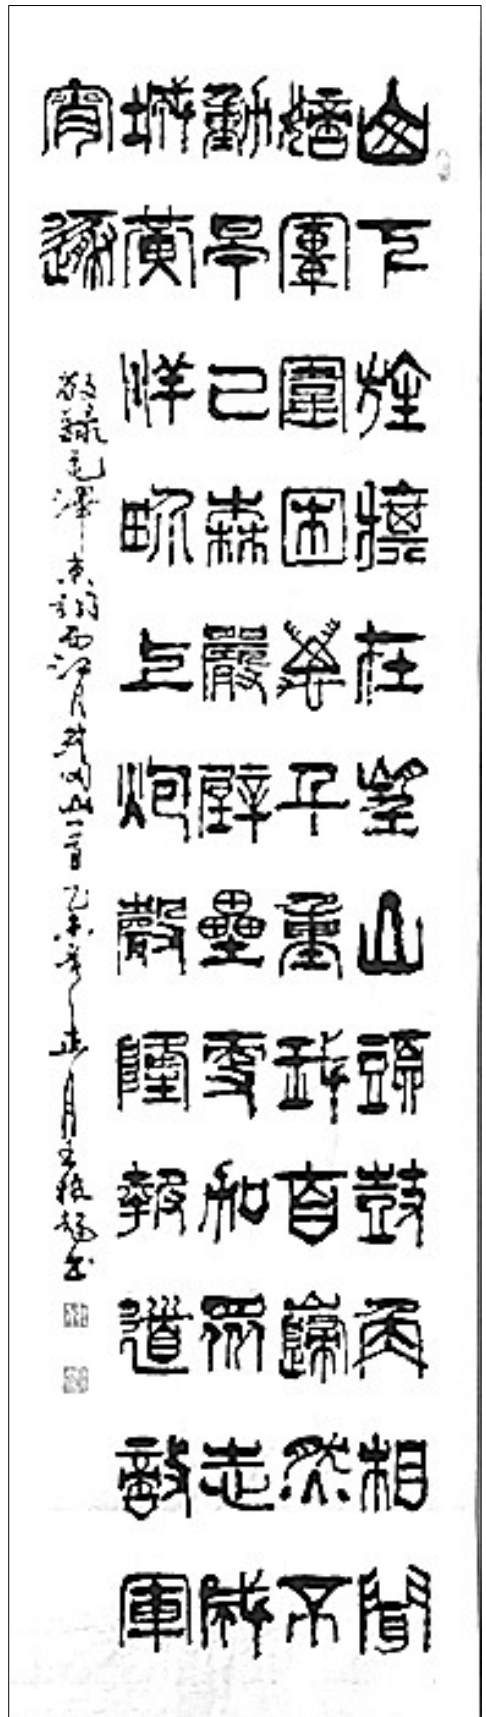 山下旌旗在望山頭鼓角相聞
敵軍圍困萬千重我自巋然不
動早已森嚴壁壘更加眾志成
城黃洋界上炮聲隆報道敵軍
宵遁
敬錄毛澤東詞西江月井岡山一首乙未年正月王書